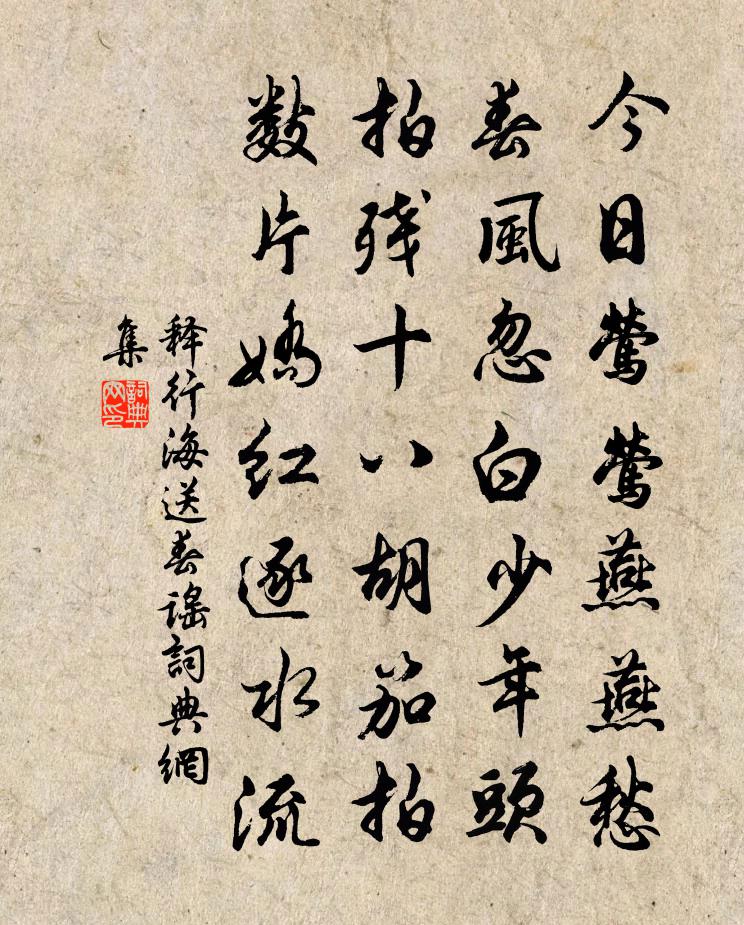 今日鶯鶯燕燕愁
春風忽白少年頭
拍殘十八胡笳拍
數片嬌紅逐水流
释行海送春謠詞典網
集
詞典
网印